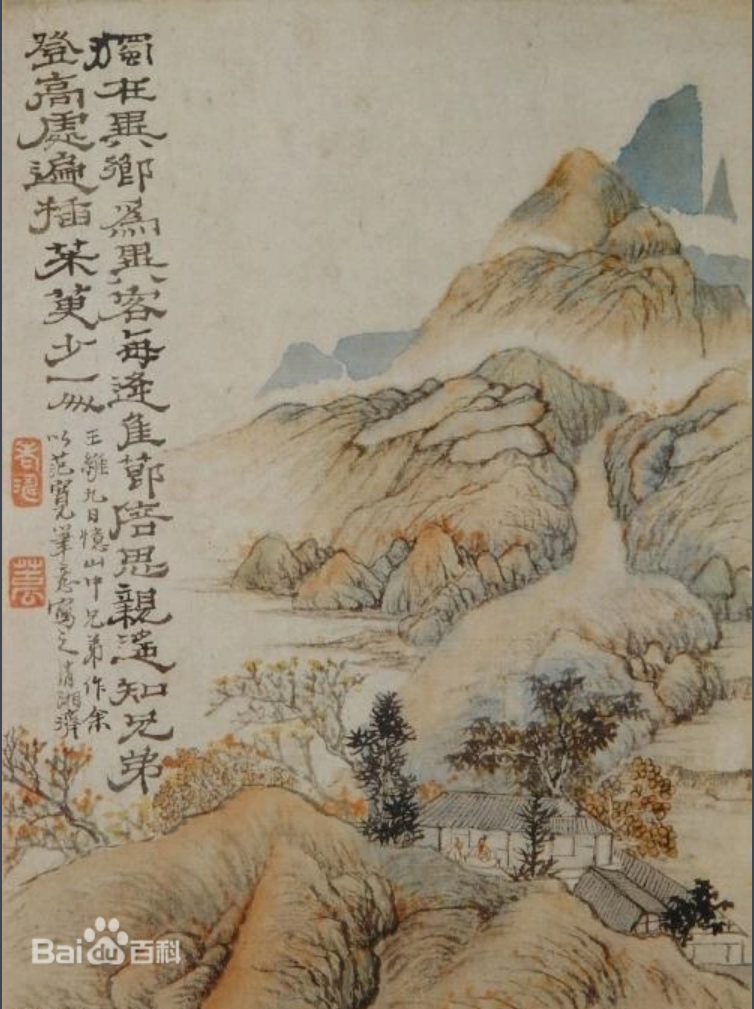 獨在異鄉為異客每逢佳節倍思親遙知兄弟
登高處遍插茱萸少一人
王維九日憶山中兄弟作余
以范寬筆意寫之清湘濟
Bai du 百科